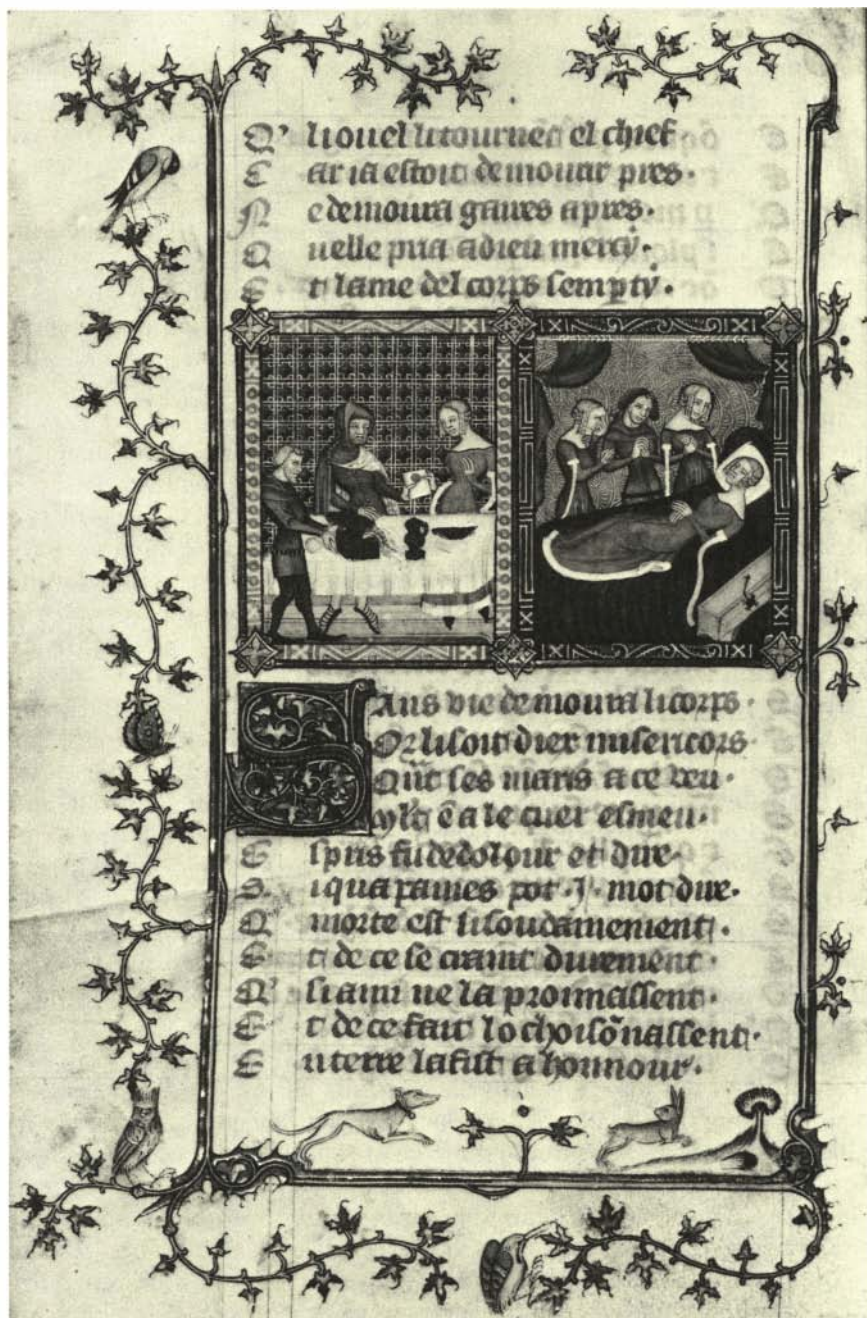 Q' li ouel li tournent el chief
Car ia estoit de mourir pres.
Ne demoura gaires apres.
Quelle pria a dieu mercy.
Et lame del corps sempty.
Sans vie demoura li corps.
Or li soit diex misericors
Qūt ses maris a ce veu.
ē a le cuer esmeu.
Espris fu de dolour et dire.
Si qua paines pot .j. mot dire.
Q morte est si soudainement.
Et de ce se craint durement.
Q' si ami ne la
Et de ce fait lochoisōnassent.
En terre la fist a honnour.